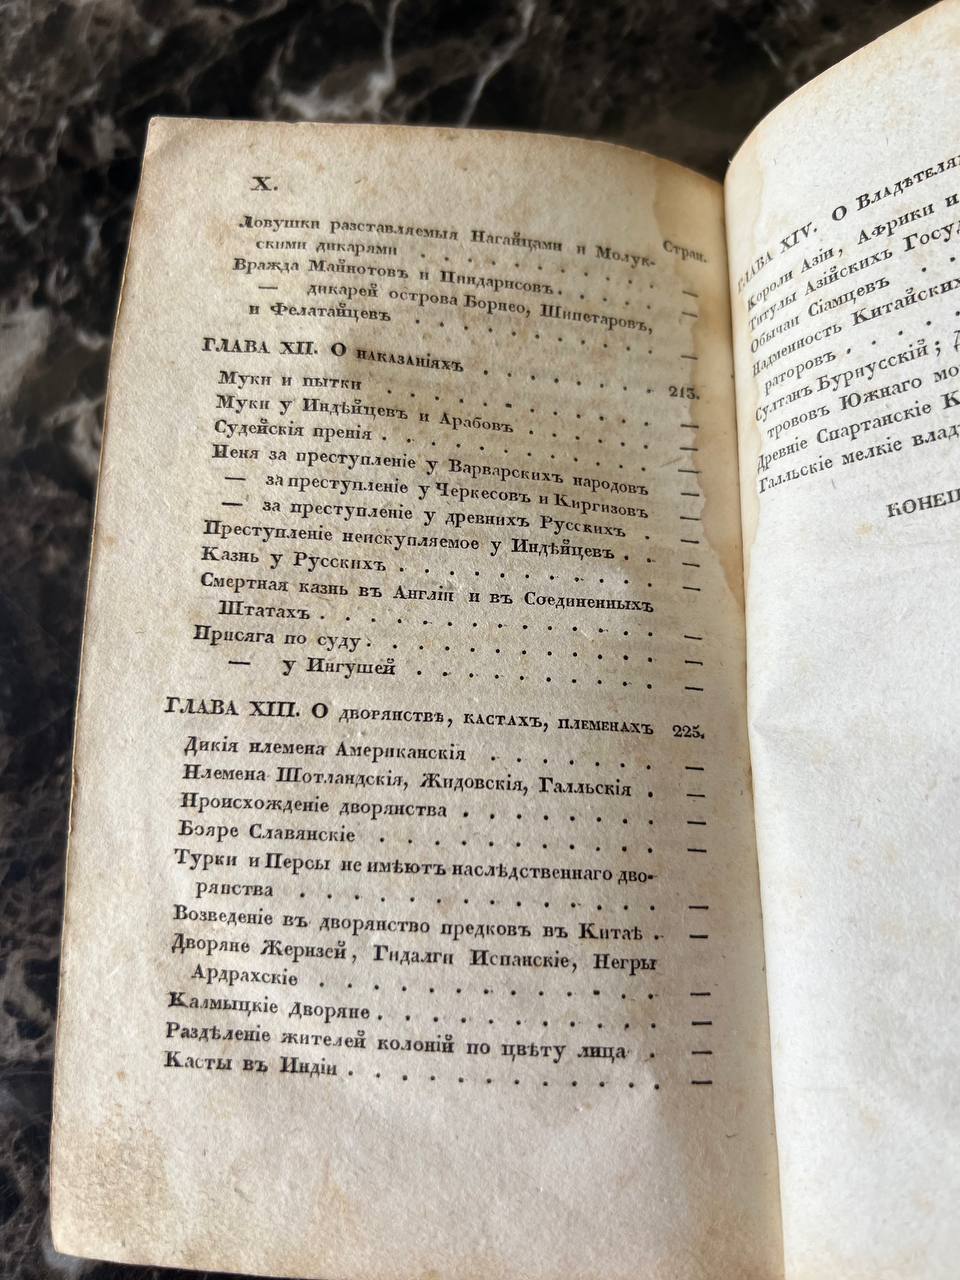 X.
Стран.
Ловушки разставляемыя Нагайцами и Молук-
скими дикарями . . . . . . . . . —
Вражда Майнотовъ и Пиндарисовъ . . . . . —
— дикарей острова Борнео, Шипетаровъ,
и Фелатайцевъ . . . . . . . . . —
ГЛАВА XII. О наказаніяхъ . . . . . . . . 213.
Муки и пытки . . . . . . . . . . —
Муки у Индѣйцевъ и Арабовъ . . . . . . —
Судейскія пренія . . . . . . . . . . —
Пеня за преступленіе у Варварскихъ народовъ —
— за преступленіе у Черкесовъ и Киргизовъ —
— за преступленіе у древнихъ Русскихъ . —
Преступленіе неискупляемое у Индѣйцевъ . . —
Казнь у Русскихъ . . . . . . . . . . —
Смертная казнь въ Англіи и въ Соединенныхъ
Штатахъ . . . . . . . . . . . . . —
Присяга по суду . . . . . . . . . . . —
— у Ингушей . . . . . . . . . . —
ГЛАВА XIII. О дворянствѣ, кастахъ, племенахъ 225.
Дикія племена Американскія . . . . . . . —
Племена Шотландскія, Жидовскія, Галльскія . —
Происхожденіе дворянства . . . . . . . . —
Бояре Славянскіе . . . . . . . . . . . —
Турки и Персы не имѣютъ наслѣдственнаго дво-
рянства . . . . . . . . . . . . . —
Возведеніе въ дворянство предковъ въ Китаѣ . —
Дворяне Жернзей, Гидалги Испанскіе, Негры
Ардрахскіе . . . . . . . . . . . . —
Калмыцкіе Дворяне . . . . . . . . . . . —
Раздѣленіе жителей колоній по цвѣту лица . —
Касты въ Индіи . . . . . . . . . . . . —
ГЛАВА XIV. О Владѣтеля
Короли Азіи, Африки и
Титулы Азійскихъ Госуд
Обычаи Сіамцевъ . .
Надменность Китайскихъ
раторовъ . . . .
Султанъ Бурнусскій;
трововъ Южнаго мо
Древніе Спартанскіе К
Галльскіе мелкіе влад
КОНЕЦ